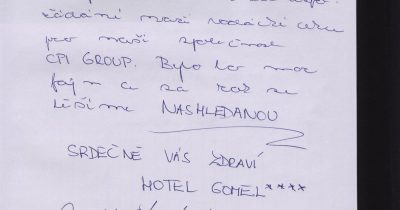 žádání naší
pro naši společnost
CPI GROUP. Bylo to moc
fajn a za rok se
těšíme NASHLEDANOU
SRDEČNĚ VÁS ZDRAVÍ
HOTEL GOMEL****